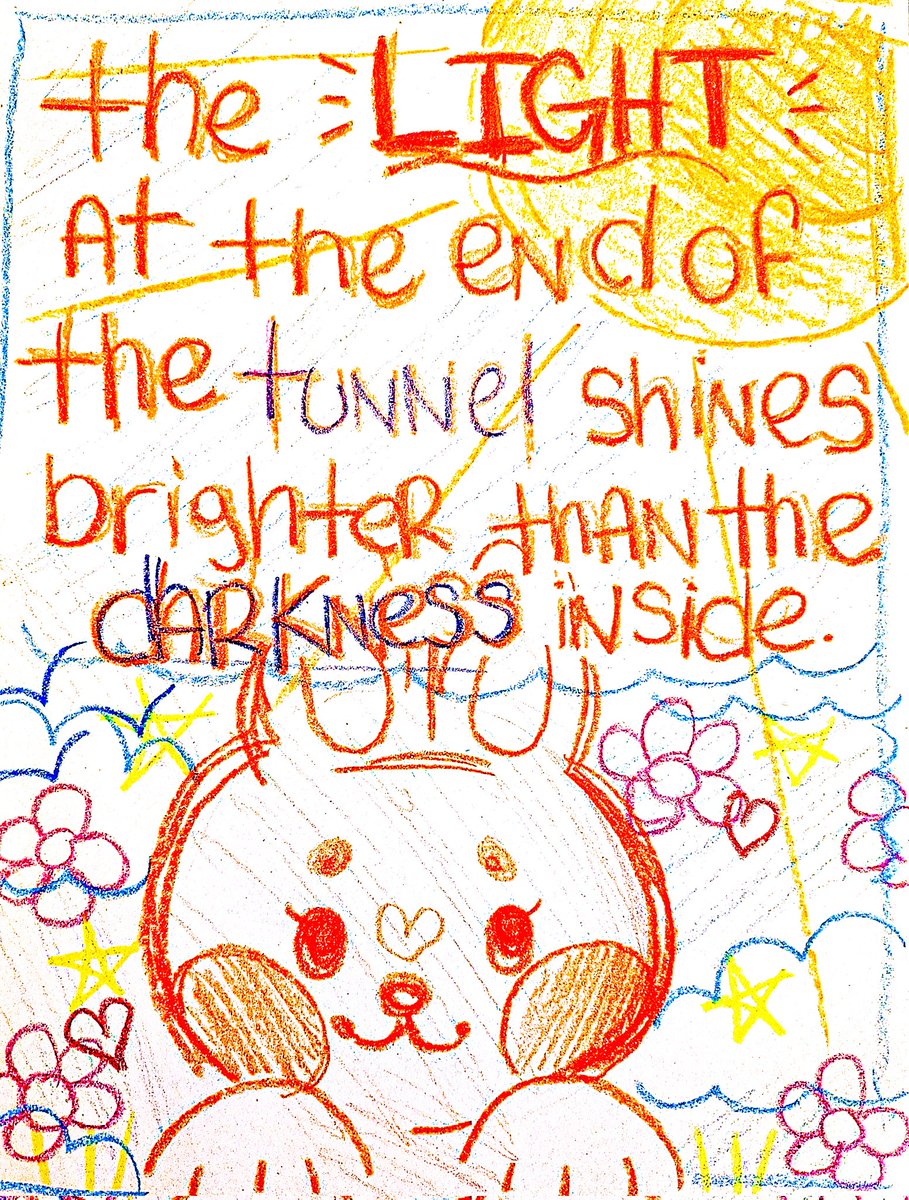 the LIGHT
At the end of
the tunnel shines
brighter than the
darkness inside.